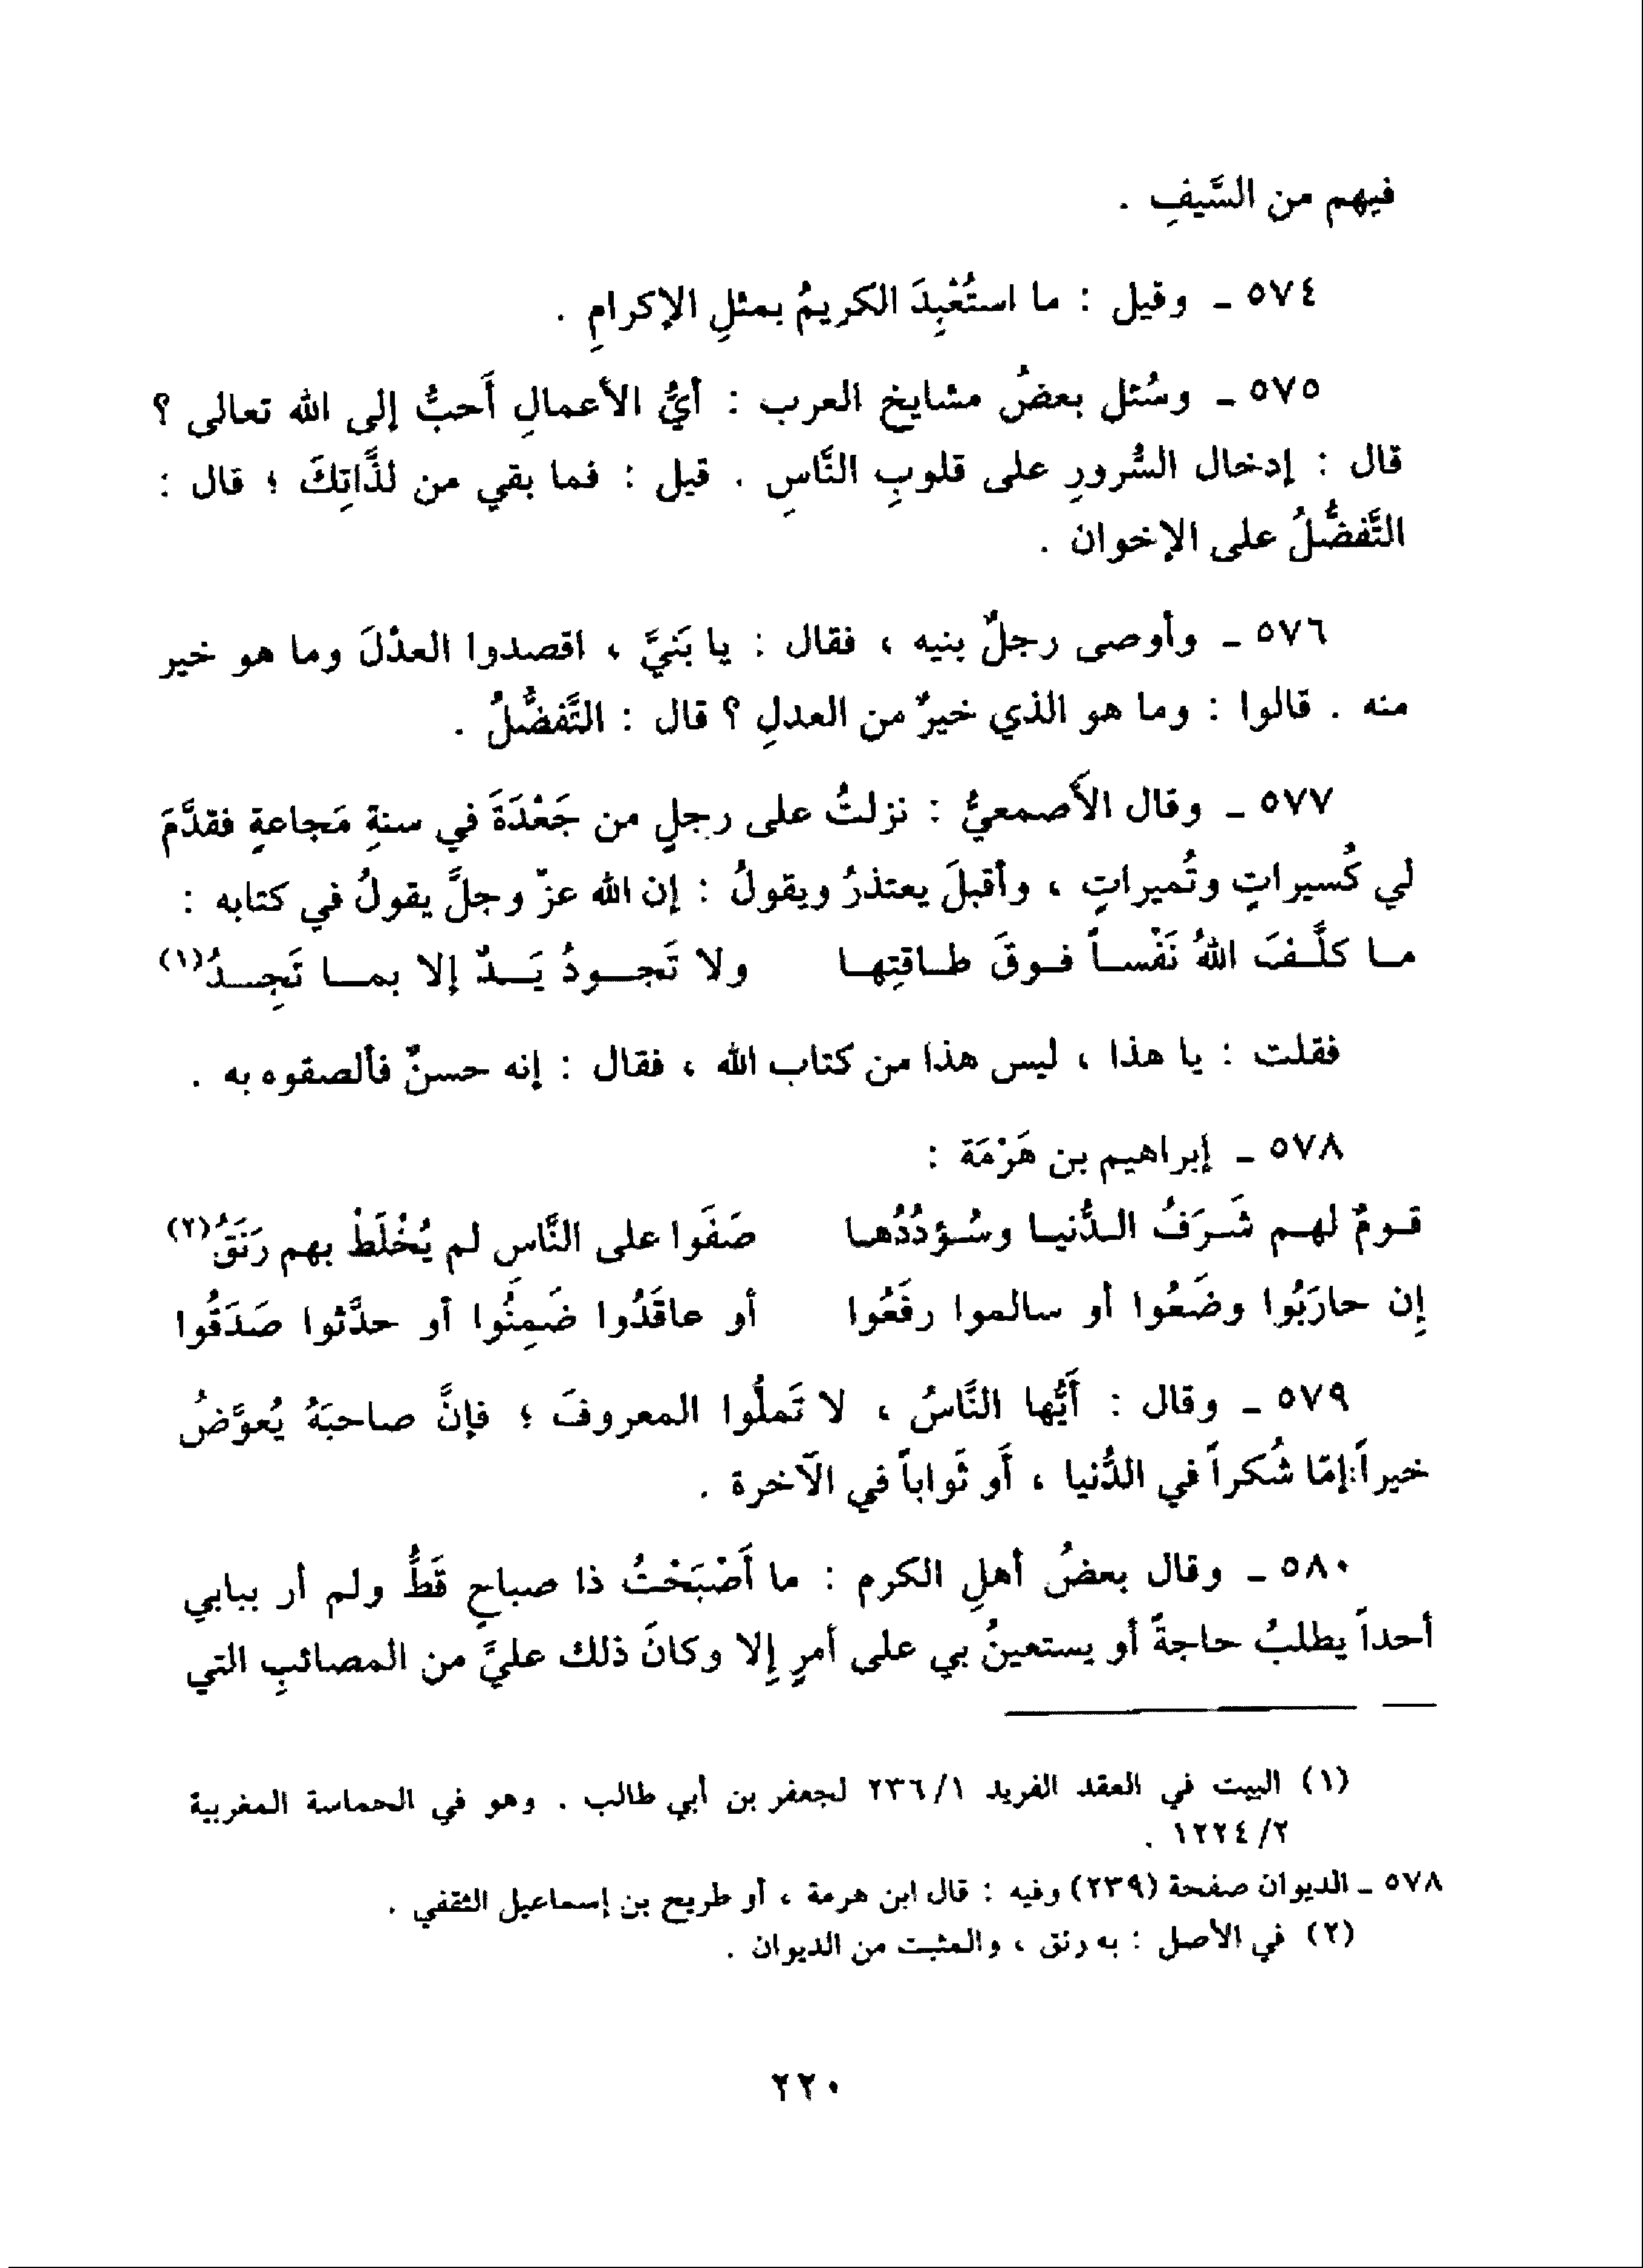 فيهم من السَّيفِ .
٥٧٤ ـ وقيل : ما استُعْبِدَ الكريمُ بمثلِ الإكرامِ .
٥٧٥ ـ وسُئل بعضُ مشايخ العرب : أيُّ الأعمالِ أَحبُّ إلى الله تعالى ؟
قال : إدخال السُّرورِ على قلوبِ النَّاسِ . قيل : فما بقي من لذَّاتِكَ ؛ قال :
التَّفضُّلُ على الإخوان .
٥٧٦ ـ وأوصى رجلٌ بنيه ، فقال : يا بَنيَّ ، اقصدوا العدْلَ وما هو خير
منه . قالوا : وما هو الذي خيرٌ من العدلِ ؟ قال : التَّفضُّلُ .
٥٧٧ ـ وقال الأَصمعيُّ : نزلتُ على رجلٍ من جَعْدَةَ في سنةِ مَجاعةٍ فقدَّمَ
لي كُسيراتٍ وتُميراتٍ ، وأقبلَ يعتذرُ ويقولُ : إن الله عزّ وجلَّ يقولُ في كتابه :
مـا كلَّـفَ اللهُ نَفْسـاً فـوقَ طـاقتِهـا ولا تَجـودُ يَـدٌ إلا بمـا تَجِـدُ(١)
فقلت : يا هذا ، ليس هذا من كتاب الله ، فقال : إنه حسنٌ فألصقوه به .
٥٧٨ ـ إبراهيم بن هَرْمَة :
قـومٌ لهـم شَـرَفُ الـدُّنيـا وسُـؤدُدُهـا صَفَوا على النَّاسِ لم يُخْلَطْ بهم رَنَقُ(٢)
إن حارَبُوا وضَعُوا أو سالموا رفَعُوا أو عاقَدُوا ضَمِنُوا أو حدَّثوا صَدَقُوا
٥٧٩ ـ وقال : أَيُّها النَّاسُ ، لا تَملُّوا المعروفَ ؛ فإنَّ صاحبَهُ يُعوَّضُ
خيراً:إمّا شُكراً في الدُّنيا ، أَو ثَواباً في الآخرة .
٥٨٠ ـ وقال بعضُ أهلِ الكرم : ما أَصْبَحْتُ ذا صباحٍ قَطُّ ولم أر ببابي
أحداً يطلبُ حاجةً أو يستعينُ بي على أمرٍ إلا وكانَ ذلك عليَّ من المصائبِ التي
(١) البيت في العقد الفريد ١/ ٢٣٦ لجعفر بن أبي طالب . وهو في الحماسة المغربية
٢/ ١٢٢٤ .
٥٧٨ ـ الديوان صفحة (٢٣٩) وفيه : قال ابن هرمة ، أو طريح بن إسماعيل الثقفي .
(٢) في الأصل : به رنق ، والمثبت من الديوان .
٢٢٠